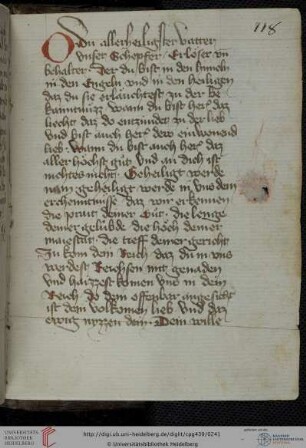 118
O du allerheiligister vatter
vnser Schepfer Erloser vn
behalter Der du bist in den himeln
in den Engeln vnd in den heiligen
daz du sie erlauchtest zu der be
kantnuzz wann du bist her daz
liecht daz do entzundet zu der lieb
vnd bist auch her dew einwonend
lieb Wann du bist auch her daz
aller hochst gut vnd an dich ist
nichtes nicht Geheiligt werde
nam geheiligt werde in vns dein
erchentnisse daz wir erkennen
die prait deiner Gut die lenge
deiner gelubde die hoch deiner
maiestat die tieff deiner gericht
Zu kom dein Reich daz du in vns
werdest Reichsen mit genaden
vnd haizzest komen vns in dein
Reich do dein offenbar angesicht
ist dein volkomen lieb vnd daz
ewig nyzzen dein Dein wille
UNIVERSITÄTS-
BIBLIOTHEK
HEIDELBERG
http://digi.ub.uni-heidelberg.de/diglit/cpg439/0241
© Universitätsbibliothek Heidelberg